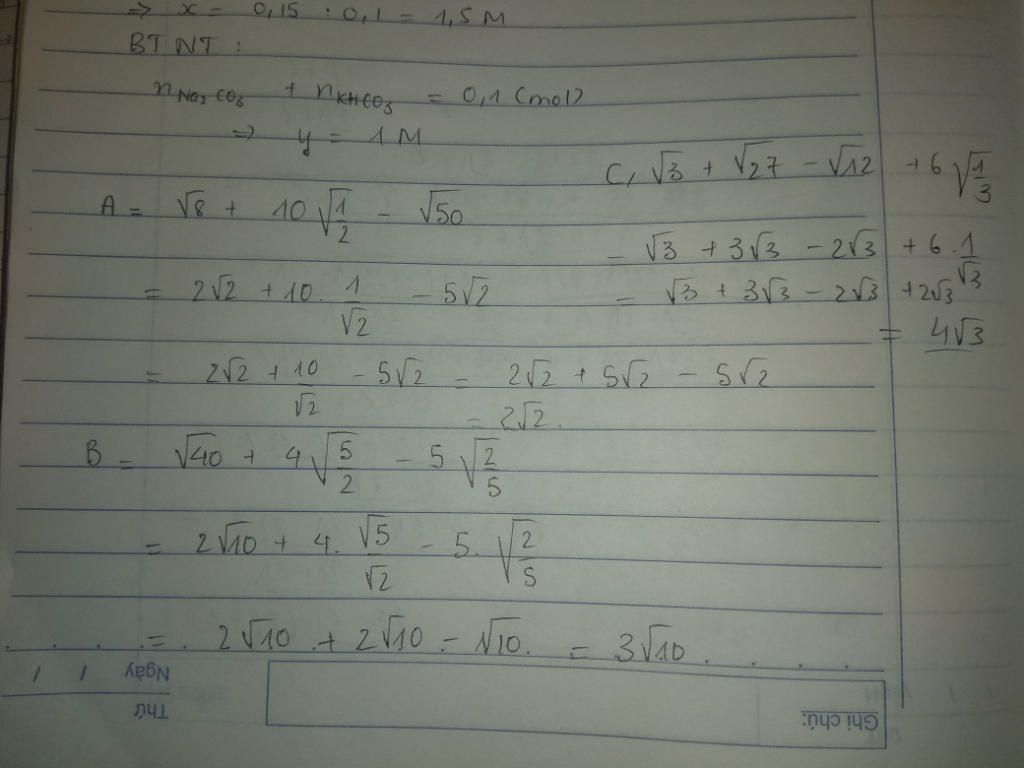 => x = 0,15 : 0,1 = 1,5 M
BT NT :
nNa2CO3 + nKHCO3 = 0,1 (mol)
=> y = 1 M
A = √8 + 10√(1/2) - √50
= 2√2 + 10. 1/√2 - 5√2
= 2√2 + 10/√2 - 5√2 = 2√2 + 5√2 - 5√2
= 2√2.
B = √40 + 4√(5/2) - 5√(2/5)
= 2√10 + 4. √5/√2 - 5. √(2/5)
= 2√10 + 2√10 - √10. = 3√10
C, √3 + √27 - √12 + 6√(1/3)
= √3 + 3√3 - 2√3 + 6. 1/√3
= √3 + 3√3 - 2√3 + 2√3
= 4√3
Thứ
Ngày / /
Ghi chú: